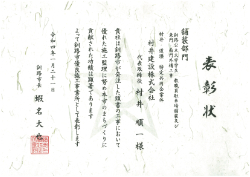 表彰状
舗装部門
村井建設株式会社
代表取締役 村井順一様
貴社は釧路市が発注した頭書の工事において
優れた施工監理に努め本市のまちづくりに
貢献された功績は顕著であります
よって釧路市優良施工事業所として表彰します
令和四年一月二十一日
釧路市長 蝦名大也